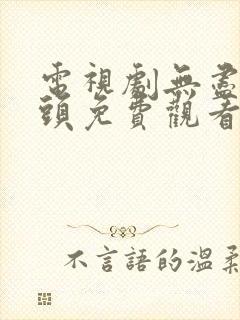 電視劇無盡
頭免費觀看
不言語的溫柔